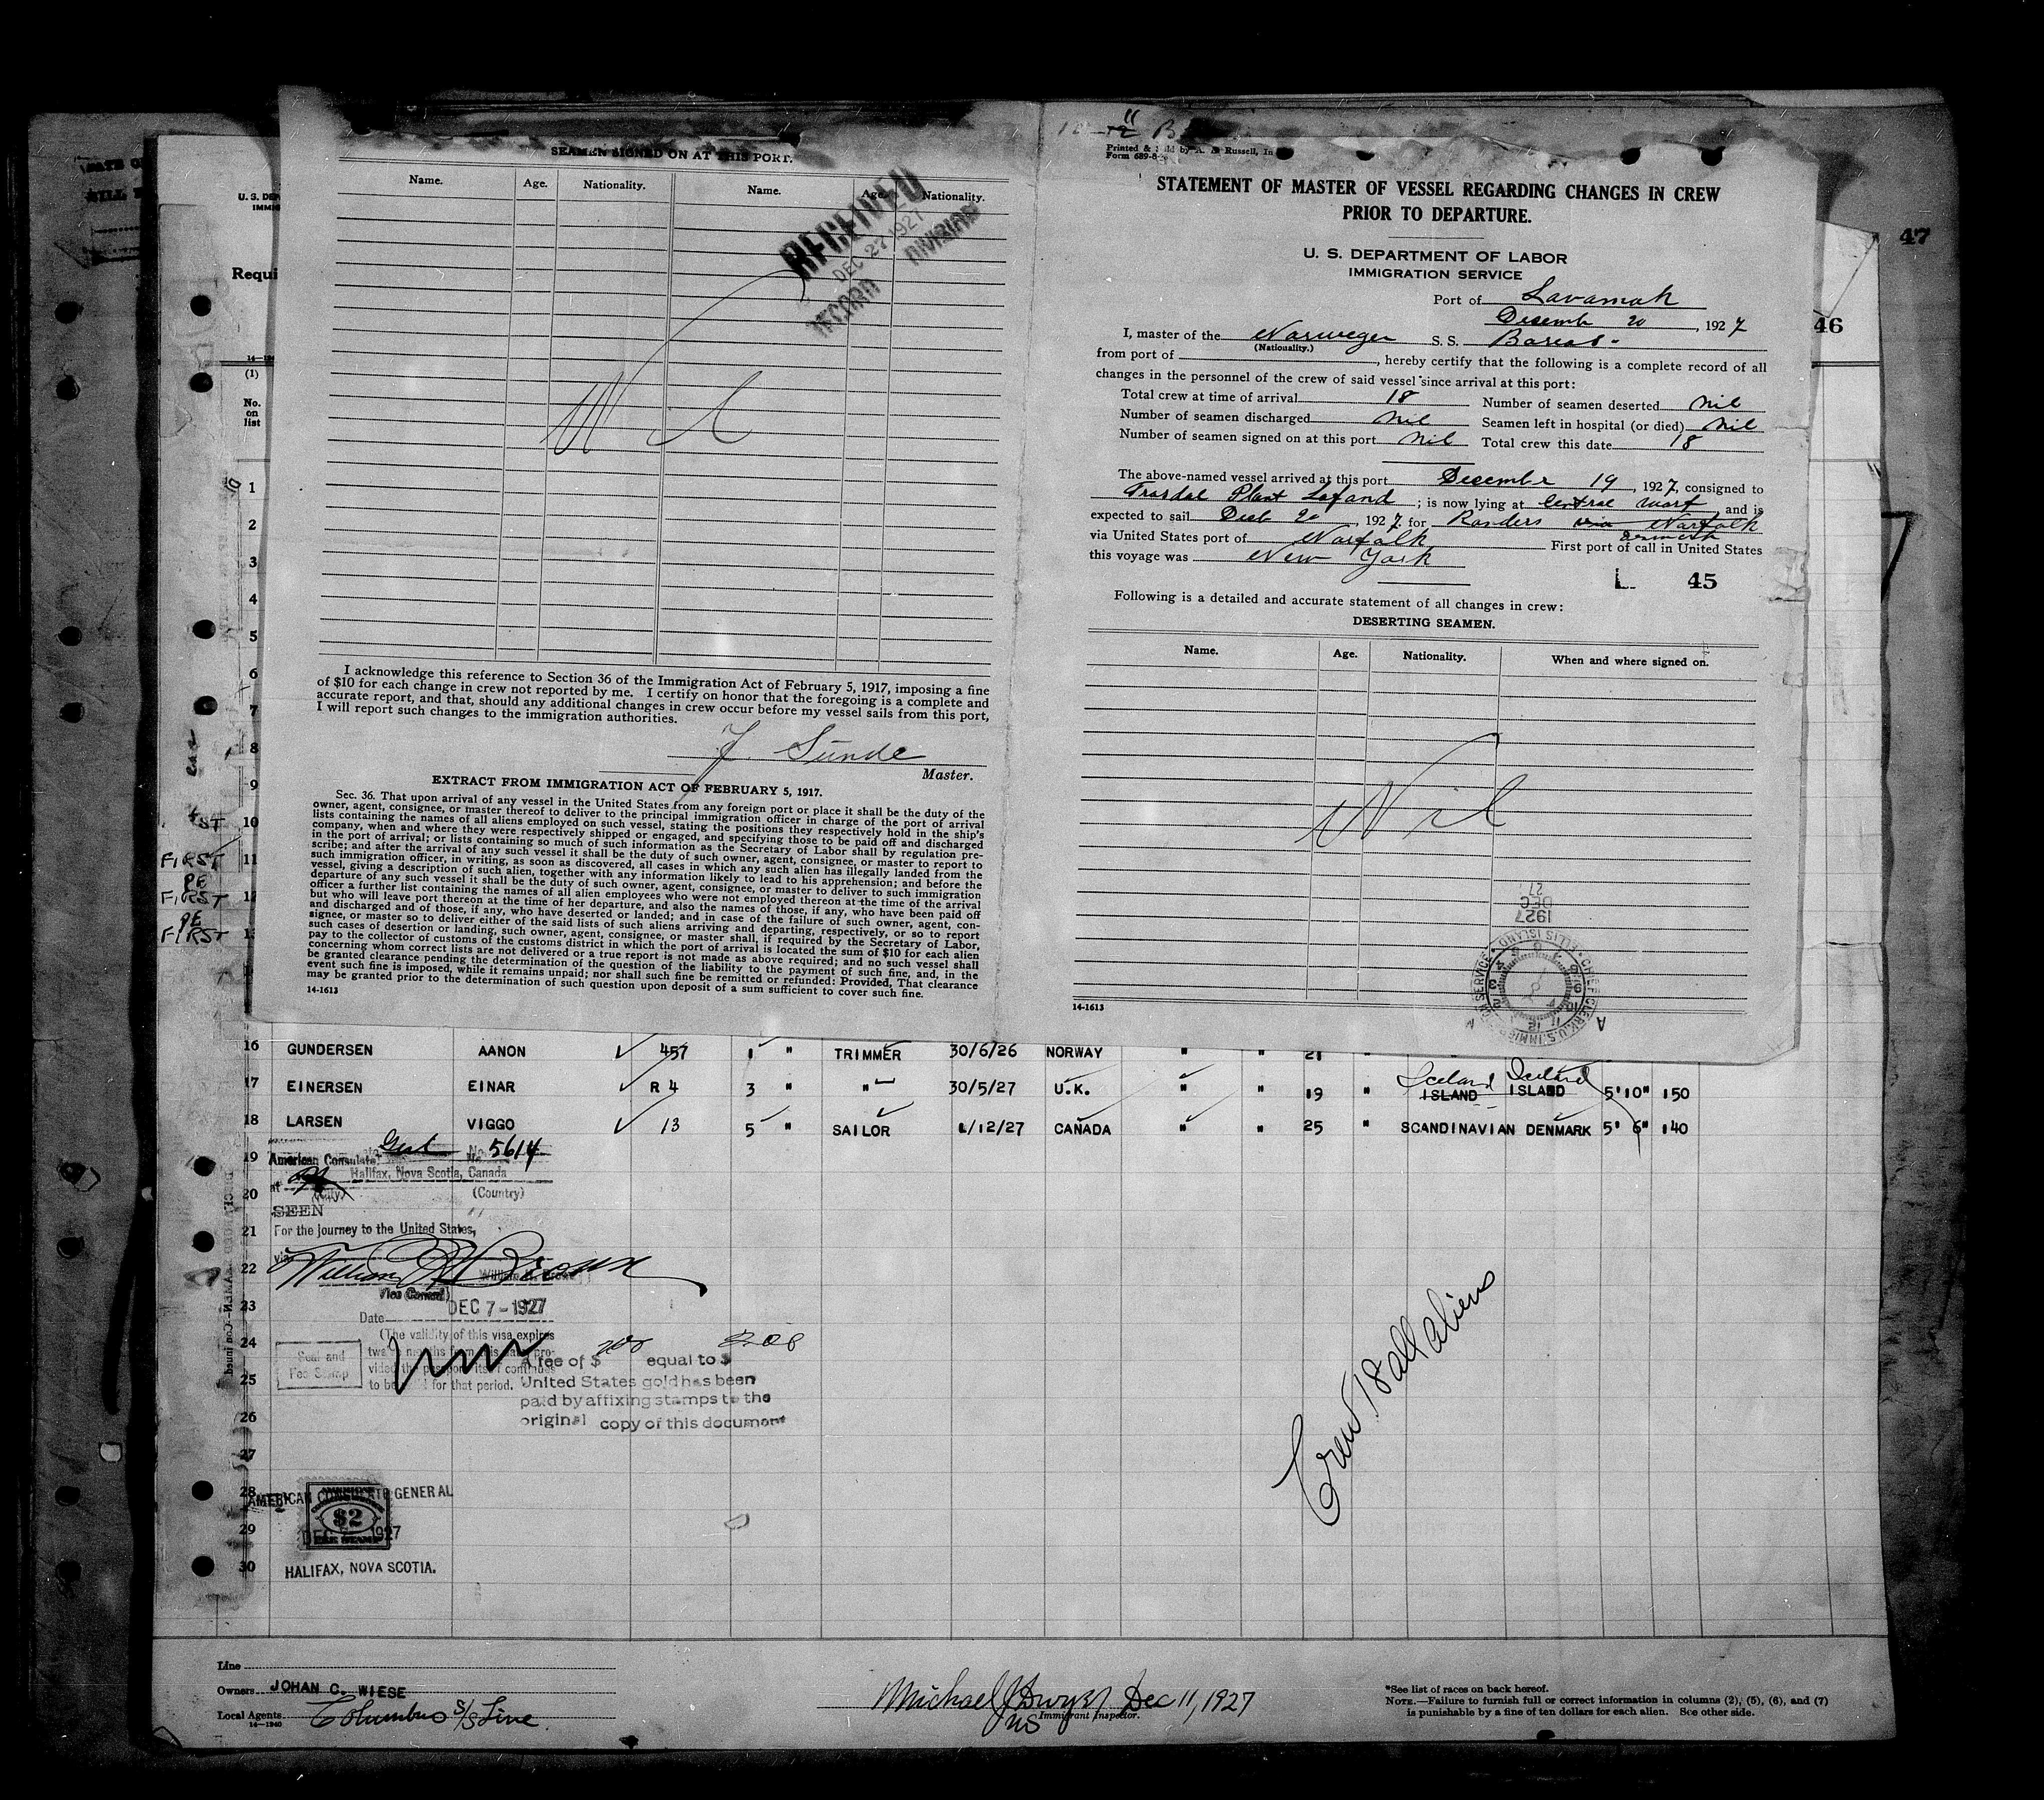 SEAMEN SIGNED ON AT THIS PORT.
Name. Age. Nationality. Name. Age. Nationality.
RECEIVED
DEC 27 1927
RECORD DIVISION
I acknowledge this reference to Section 36 of the Immigration Act of February 5, 1917, imposing a fine
of $10 for each change in crew not reported by me. I certify on honor that the foregoing is a complete and
accurate report, and that, should any additional changes in crew occur before my vessel sails from this port,
I will report such changes to the immigration authorities.
J. Sunde
Master.
EXTRACT FROM IMMIGRATION ACT OF FEBRUARY 5, 1917.
Sec. 36. That upon arrival of any vessel in the United States from any foreign port or place it shall be the duty of the
owner, agent, consignee, or master thereof to deliver to the principal immigration officer in charge of the port of arrival
lists containing the names of all aliens employed on such vessel, stating the positions they respectively hold in the ship's
company, when and where they were respectively shipped or engaged, and specifying those to be paid off and discharged
in the port of arrival; or lists containing so much of such information as the Secretary of Labor shall by regulation pre-
scribe; and after the arrival of any such vessel it shall be the duty of such owner, agent, consignee, or master to report to
such immigration officer, in writing, as soon as discovered, all cases in which any such alien has illegally landed from the
vessel, giving a description of such alien, together with any information likely to lead to his apprehension; and before the
departure of any such vessel it shall be the duty of such owner, agent, consignee, or master to deliver to such immigration
officer a further list containing the names of all alien employees who were not employed thereon at the time of the arrival
but who will leave port thereon at the time of her departure, and also the names of those, if any, who have been paid off
and discharged and of those, if any, who have deserted or landed; and in case of the failure of such owner, agent, con-
signee, or master so to deliver either of the said lists of such aliens arriving and departing, respectively, or so to report
such cases of desertion or landing, such owner, agent, consignee, or master shall, if required by the Secretary of Labor,
pay to the collector of customs of the customs district in which the port of arrival is located the sum of $10 for each alien
concerning whom correct lists are not delivered or a true report is not made as above required; and no such vessel shall
be granted clearance pending the determination of the question of the liability to the payment of such fine, and, in the
event such fine is imposed, while it remains unpaid; nor shall such fine be remitted or refunded: Provided, That clearance
may be granted prior to the determination of such question upon deposit of a sum sufficient to cover such fine.
14-1613
Form 689-
STATEMENT OF MASTER OF VESSEL REGARDING CHANGES IN CREW
PRIOR TO DEPARTURE.
U. S. DEPARTMENT OF LABOR
IMMIGRATION SERVICE
Port of Savannah
Desemb 20, 1927
I, master of the Norweger S. S. Boreas
(Nationality.)
from port of , hereby certify that the following is a complete record of all
changes in the personnel of the crew of said vessel since arrival at this port:
Total crew at time of arrival 18 Number of seamen deserted nil
Number of seamen discharged nil Seamen left in hospital (or died) nil
Number of seamen signed on at this port nil Total crew this date 18
The above-named vessel arrived at this port Desember 19, 1927, consigned to
Trosdal Plant Lafond; is now lying at Central warf, and is
expected to sail Desb 20, 1927 for Randers via Norfolk
via United States port of Norfolk First port of call in United States
this voyage was New York
L 45
Following is a detailed and accurate statement of all changes in crew:
DESERTING SEAMEN.
Name. Age. Nationality. When and where signed on.
Nil
1927
DEC
27
CHIEF CLERK, U.S. IMMIGRATION SERVICE
ELLIS ISLAND
14-1613
47
46
Requi
(1)
No.
on
list
1
2
3
4
5
6
7
8
9
10
FIRST 11
PE
FIRST 12
PE
FIRST
16 GUNDERSEN AANON 457 1 " TRIMMER 30/6/26 NORWAY " " 21 "
17 EINERSEN EINAR R 4 3 " " 30/5/27 U.K. " " 19 " Iceland Iceland
ISLAND ISLAND 5'10" 150
18 LARSEN VIGGO 13 5 " SAILOR 1/12/27 CANADA " " 25 " SCANDINAVIAN DENMARK 5' 6" 140
19 American Consulate Genl No. 5614
at Halifax, Nova Scotia, Canada
20 (City) (Country)
SEEN
21 For the journey to the United States,
via
22 William H. Brown
Vice Consul
23 DEC 7 - 1927
Date
24 (The validity of this visa expires
Seal and
Fee Stamp
A fee of $ 200 equal to $ 2.00
25 to be for that period. United States gold has been
paid by affixing stamps to the
26 original copy of this document
27
Crew 18 all aliens
28 AMERICAN CONSULATE GENERAL
$2
29 DEC 1927
FEE STAMP
30 HALIFAX, NOVA SCOTIA.
Line
Owners JOHAN C. WIESE
Local Agents Columbus S/S Line
14-1940
Michael J Dwyer Dec 11, 1927
Immigrant Inspector.
*See list of races on back hereof.
NOTE.—Failure to furnish full or correct information in columns (2), (5), (6), and (7)
is punishable by a fine of ten dollars for each alien. See other side.